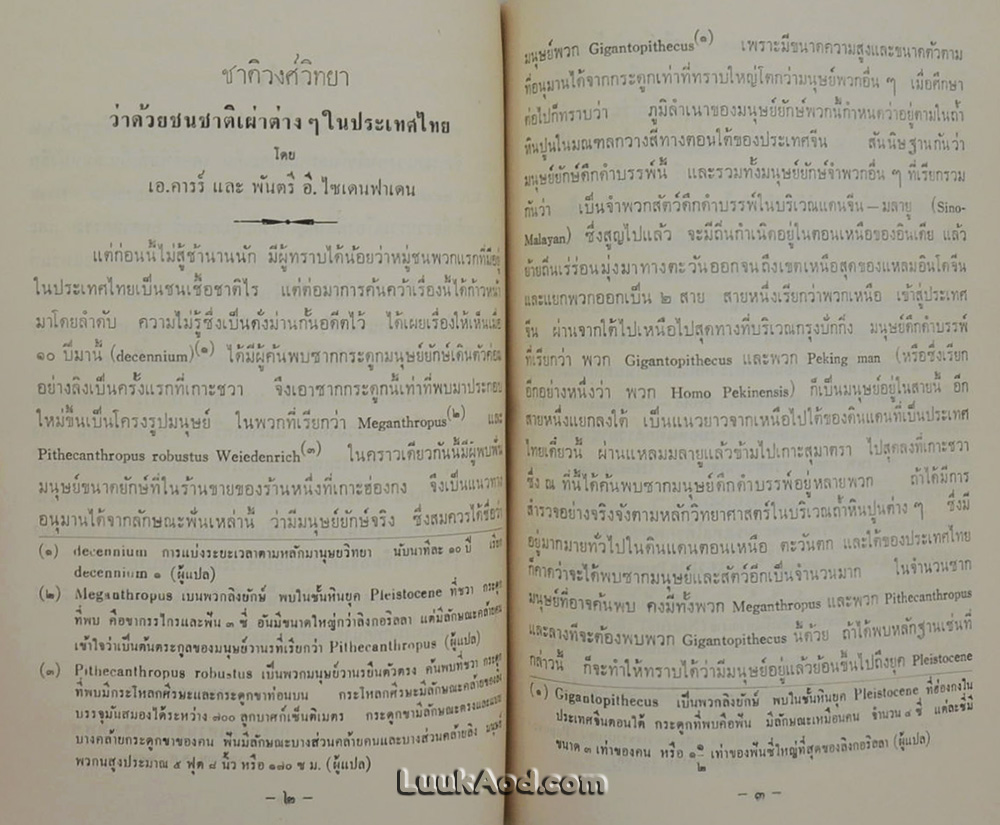 ชาติวงศ์วิทยา
ว่าด้วยชนชาติเผ่าต่าง ๆ ในประเทศไทย
โดย
เอ.คารร์ และ พันตรี อี. ไซเดนฟาเดน
แต่ก่อนนี้ไม่สู้ช้านานนัก มีผู้ทราบได้น้อยว่าหมู่ชนพวกแรกที่มีอยู่
ในประเทศไทยเป็นชนเชื้อชาติไร แต่ต่อมาการค้นคว้าเรื่องนี้ได้ก้าวหน้า
มาโดยลำดับ ความไม่รู้ซึ่งเป็นดั่งม่านกั้นอดีตไว้ ได้เผยเรื่องให้เห็นเมื่อ
๑๐ ปีมานี้ (decennium)(๑) ได้มีผู้ค้นพบซากกระดูกมนุษย์ยักษ์เดินตัวค่อม
อย่างลิงเป็นครั้งแรกที่เกาะชวา จึงเอาซากกระดูกนี้เท่าที่พบมาประกอบ
ใหม่ขึ้นเป็นโครงรูปมนุษย์ ในพวกที่เรียกว่า Meganthropus(๒) และ
Pithecanthropus robustus Weiedenrich(๓) ในคราวเดียวกันนี้มีผู้พบฟัน
มนุษย์ขนาดยักษ์ที่ในร้านขายของร้านหนึ่งที่เกาะฮ่องกง จึงเป็นแนวทาง
อนุมานได้จากลักษณะฟันเหล่านี้ ว่ามีมนุษย์ยักษ์จริง ซึ่งสมควรได้ชื่อว่า
(๑) decennium การแบ่งระยะเวลาตามหลักมานุษยวิทยา นับนาทีละ ๑๐ ปี เรียก
decennium ๑ (ผู้แปล)
(๒) Meganthropus เป็นพวกลิงยักษ์ พบในชั้นหินยุค Pleistocene ที่ชวา กระดูก
ที่พบ คือขากรรไกรและฟัน ๓ ซี่ อันมีขนาดใหญ่กว่าลิงกอริลลา แต่มีลักษณะคล้ายคน
เข้าใจว่าเป็นต้นตระกูลของมนุษย์วานรที่เรียกว่า Pithecanthropus (ผู้แปล)
(๓) Pithecanthropus robustus เป็นพวกมนุษย์วานรยืนตัวตรง ค้นพบที่ชวา กระดูก
ที่พบมีกระโหลกศีรษะและกระดูกขาท่อนบน กระโหลกศีรษะมีลักษณะคล้ายของลิง
บรรจุมันสมองได้ระหว่าง ๗๐๐ ลูกบาศก์เซ็นติเมตร กระดูกขามีลักษณะตรงและแบน
บางคล้ายกระดูกขาของคน ฟันมีลักษณะบางส่วนคล้ายคนและบางส่วนคล้ายลิง มนุษย์
พวกนสูงประมาณ ๕ ฟุต ๘ นิ้ว หรือ ๑๗๐ ซ ม. (ผู้แปล)
— ๒ —
มนุษย์พวก Gigantopithecus(๑) เพราะมีขนาดความสูงและขนาดตัวตาม
ที่อนุมานได้จากกระดูกเท่าที่ทราบใหญ่โตกว่ามนุษย์พวกอื่น ๆ เมื่อศึกษา
ต่อไปก็ทราบว่า ภูมิลำเนาของมนุษย์ยักษ์พวกนี้กำหนดว่าอยู่ตามในถ้ำ
หินปูนในมณฑลกวางสีทางตอนใต้ของประเทศจีน สันนิษฐานกันว่า
มนุษย์ยักษ์ดึกดำบรรพ์นี้ และรวมทั้งมนุษย์ยักษ์จำพวกอื่น ๆ ที่เรียกรวม
กันว่า เป็นจำพวกสัตว์ดึกดำบรรพ์ในบริเวณแดนจีน – มลายู (Sino-
Malayan) ซึ่งสูญไปแล้ว จะมีถิ่นกำเนิดอยู่ในตอนเหนือของอินเดีย แล้ว
ย้ายถิ่นเร่ร่อนมุ่งมาทางตะวันออกจนถึงเขตเหนือสุดของแหลมอินโดจีน
และแยกพวกออกเป็น ๒ สาย สายหนึ่งเรียกว่าพวกเหนือ เข้าสู่ประเทศ
จีน ผ่านจากใต้ไปเหนือไปสุดทางที่บริเวณกรุงปักกิ่ง มนุษย์ดึกดำบรรพ์
ที่เรียกว่า พวก Gigantopithecus และพวก Peking man (หรือซึ่งเรียก
อีกอย่างหนึ่งว่า พวก Homo Pekinensis) ก็เป็นมนุษย์อยู่ในสายนี้ อีก
สายหนึ่งแยกลงใต้ เป็นแนวยาวจากเหนือไปใต้ของดินแดนที่เป็นประเทศ
ไทยเดี๋ยวนี้ ผ่านแหลมมลายูแล้วข้ามไปเกาะสุมาตรา ไปสุดลงที่เกาะชวา
ซึ่ง ณ ที่นี้ได้ค้นพบซากมนุษย์ดึกดำบรรพ์อยู่หลายพวก ถ้าได้มีการ
สำรวจอย่างจริงจังตามหลักวิทยาศาสตร์ในบริเวณถ้ำหินปูนต่าง ๆ ซึ่งมี
อยู่มากมายทั่วไปในดินแดนตอนเหนือ ตะวันตก และใต้ของประเทศไทย
ก็คาดว่าจะได้พบซากมนุษย์และสัตว์อีกเป็นจำนวนมาก ในจำนวนซาก
มนุษย์ที่อาจค้นพบ คงมีทั้งพวก Meganthropus และพวก Pithecanthropus
และลางทีจะต้องพบพวก Gigantopithecus นี้ด้วย ถ้าได้พบหลักฐานเช่นที่
กล่าวนี้ ก็จะทำให้ทราบได้ว่ามีมนุษย์อยู่แล้วย้อนขึ้นไปถึงยุค Pleistocene
(๑) Gigantopithecus เป็นพวกลิงยักษ์ พบในชั้นหินยุค Pleistocene ที่ฮ่องกงใน
ประเทศจีนตอนใต้ กระดูกที่พบคือฟัน มีลักษณะเหมือนคน จำนวน ๔ ซี่ แต่ละซี่มี
ขนาด ๓ เท่าของคน หรือ ๑ ๑/๒ เท่าของฟันซี่ใหญ่ที่สุดของลิงกอริลลา (ผู้แปล)
— ๓ —
LuukAod.com